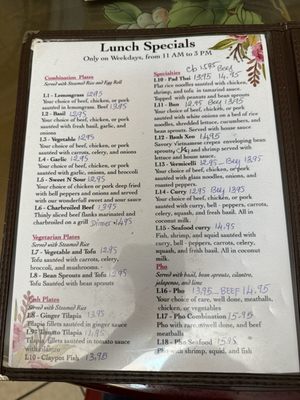 Lunch Specials
Only on Weekdays, from 11 AM to 3 PM
Combination Plates
Served with Steamed Rice and Egg Roll
L1 - Lemongrass 12.95
Your choice of beef, chicken, or pork
sautéed in lemongrass. Beef 13.95
L2 - Basil 12.95
Your choice of beef, chicken, or pork
sautéed with fresh basil, garlic, and
onions
L3 - Vegetable 12.95
Your choice of beef, chicken, or pork
sautéed with carrots, celery, and onions
L4 - Garlic 12.95
Your choice of beef, chicken, or pork
sautéed with garlic, onions, and broccoli
L5 - Sweet N Sour 12.95
Your choice of chicken or pork deep fried
with bell peppers and onions and served
with our wonderful sweet and sour sauce
L6 - Charbroiled Beef 13.95
Thinly sliced beef flanks marinated and
charbroiled on a grill
Vegetarian Plates
Served with Steamed Rice
L7 - Vegetable and Tofu 12.95
Tofu sautéed with carrots, celery,
broccoli, and mushrooms.
L8 - Bean Sprouts and Tofu 12.95
Tofu sautéed with
Fish Plates
Served with Steamed Rice
L8 - Ginger Tilapia 13.95
Tilapia fillets sautéed in ginger sauce
L9 - Tomato Tilapia
Tilapia fillets sautéed in tomato sauce
with cilantro
L10 - Claypot Fish 13.95
Specialties
L10 - Pad Thai 13.95 14.95
Flat rice noodles sautéed with chicken,
shrimp, and tofu in tamarind sauce.
Topped with peanuts and bean sprouts
L11 - Bun 12.95 Beef 13.95
Your choice of beef, chicken, or pork
sautéed with white onions on a bed of rice
noodles, shredded lettuce, cucumbers, and
bean sprouts. Served with house sauce
L12 - Banh Xeo 14.95
Savory Vietnamese crepes enveloping bean
sprouts, and shrimp served with
lettuce and house sauce.
L13 - Vermicelli 12.95 - Beef 13.95
Your choice of beef, chicken, or pork
sautéed with glass noodles, onions, and
roasted peppers.
L14 - Curry 12.95 Beef 13.95
Your choice of beef, chicken, or pork
sautéed with curry, bell - peppers, carrots,
celery, squash, and fresh basil. All in
coconut milk.
L15 - Seafood curry 14.95
Fish, shrimp, and squid sautéed with
curry, bell - peppers, carrots, celery,
squash, and fresh basil. All in coconut
milk.
Pho
Served with basil, bean sprouts, cilantro,
jalapenos, and lime
L16 - Pho 13.95 BEEF 14.95
Your choice of rare, well done, meatballs,
chicken, or vegetables
L17 - Pho Combination 15.95
Pho with rare, well done, and beef
meatballs
L18 - Pho Seafood 15.95
Pho with shrimp, squid, and fish